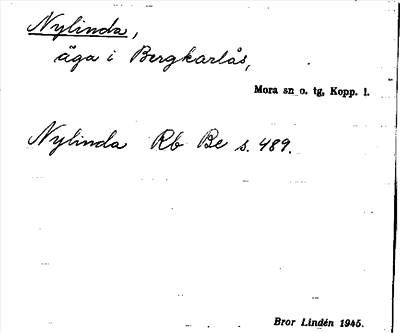 Nylinda,
äga i Bergkarlås,
Mora sn o. tg, Kopp. l.
Nylinda Rb Be s. 489.
Bror Lindén 1945.